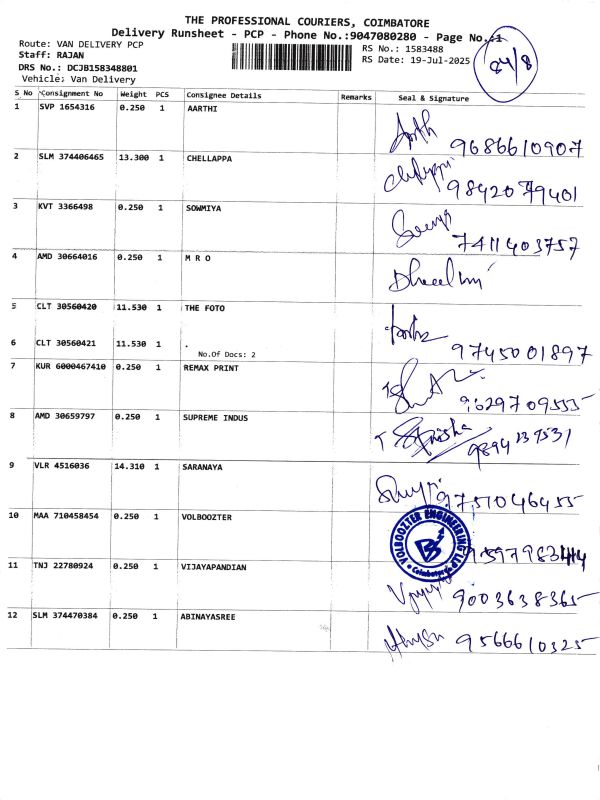 THE PROFESSIONAL COURIERS, COIMBATORE
Delivery Runsheet - PCP - Phone No.:9047080280 - Page No.:1
Route: VAN DELIVERY PCP
RS No.: 1583488
84/8
Staff: RAJAN
RS Date: 19-Jul-2025
DRS No.: DCJB158348801
Vehicle: Van Delivery
S No Consignment No Weight PCS Consignee Details Remarks Seal & Signature
1 SVP 1654316 0.250 1 AARTHI
9686610907
2 SLM 374406465 13.300 1 CHELLAPPA
9842079401
3 KVT 3366498 0.250 1 SOWMIYA
7411403757
4 AMD 30664016 0.250 1 M R O
5 CLT 30560420 11.530 1 THE FOTO
6 CLT 30560421 11.530 1 .
No.Of Docs: 2
9745001897
7 KUR 6000467410 0.250 1 REMAX PRINT
9629709555
8 AMD 30659797 0.250 1 SUPREME INDUS
9894139531
9 VLR 4516036 14.310 1 SARANAYA
9751046455
10 MAA 710458454 0.250 1 VOLBOOZTER
VOLBOOZTER ENGINEERING LLP
Coimbatore
11 TNJ 22780924 0.250 1 VIJAYAPANDIAN
9003638365
12 SLM 374470384 0.250 1 ABINAYASREE
9566610325